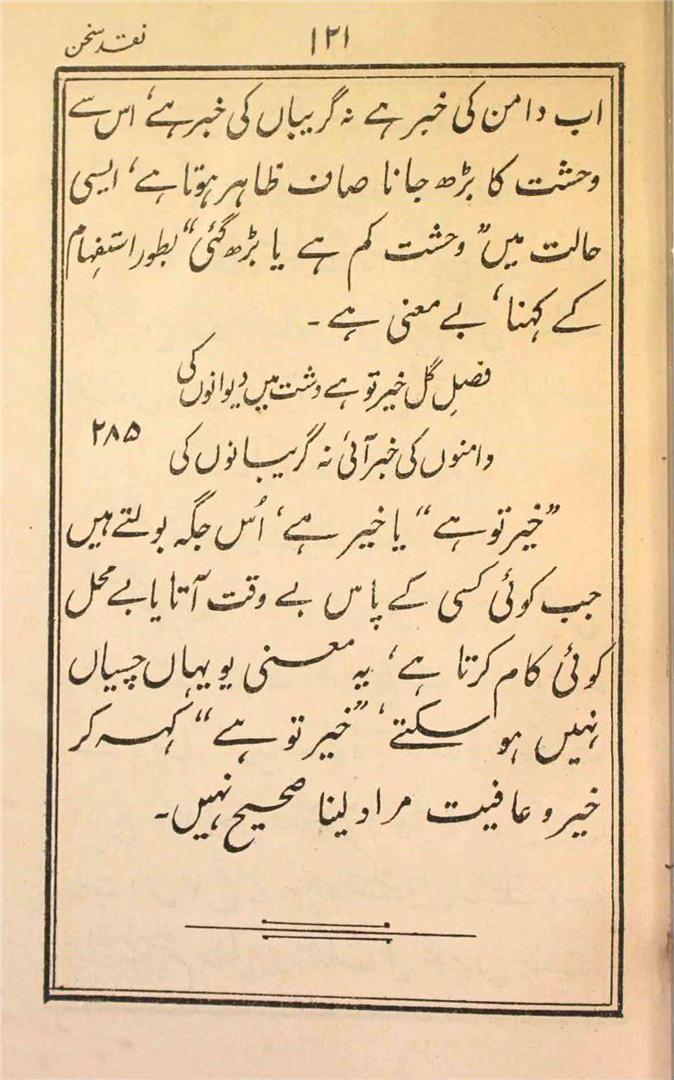 نقد سخن
۱۲۱
اب دامن کی خبر ہے نہ گریباں کی خبر ہے، اس سے
وحشت کا بڑھ جانا صاف ظاہر ہوتا ہے، ایسی
حالت میں ”وحشت کم ہے یا بڑھ گئی“ بطور استفہام
کے کہنا، بے معنی ہے۔
فصلِ گل خیر تو ہے دشت میں دیوانوں کی
دامنوں کی خبر آئی نہ گریبانوں کی
۲۸۵
”خیر تو ہے“ یا خیر ہے، اُس جگہ بولتے ہیں
جب کوئی کسی کے پاس بے وقت آتا یا بے محل
کوئی کام کرتا ہے، یہ معنی یو یہاں چسپاں
نہیں ہو سکتے، ”خیر تو ہے“ کہہ کر
خیر و عافیت مراد لینا صحیح نہیں۔